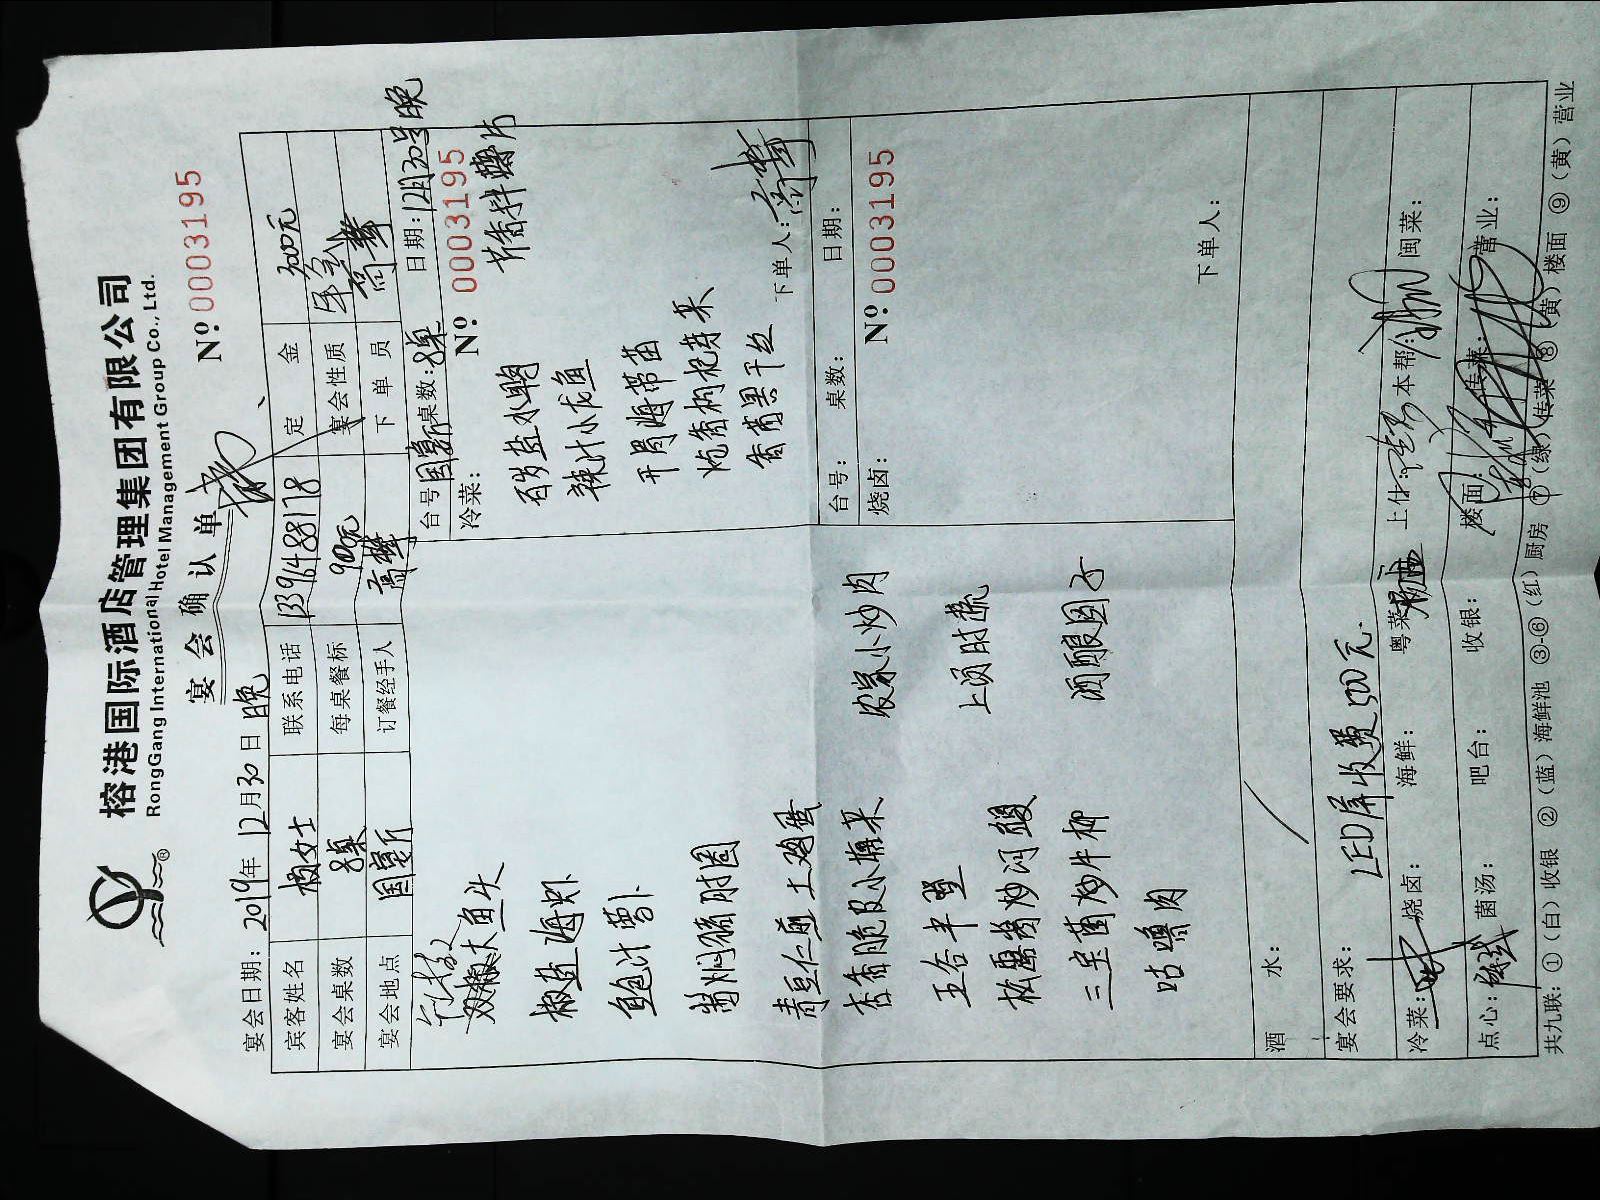 榕港国际酒店管理集团有限公司
RongGang International Hotel Management Group Co., Ltd.
宴会确认单
Nº: 0003195
宴会日期: 2019年12月30日 晚
宾客姓名 女士 联系电话 13396488178 定金 3000元
宴会桌数 8桌 每桌餐标 900元 宴会性质
宴会地点 国宴厅 订餐经手人 高攀 下单员 高攀
双椒大鱼头
椒盐海虾
鲍汁萝卜
青豆仁煎土鸡蛋
杏香脆皮小 农家小炒肉
上汤时蔬
三宝菌炒牛柳 酒酿圆子
咕噜肉
台号 国宴厅 桌数: 8桌 日期: 12月30号晚
冷菜: Nº: 0003195
盐水鸭
辣汁小龙鱼
开胃海带苗
炝香枸杞芽菜
香菌黑干丝
下单人: 高攀
台号: 桌数: 日期:
烧卤: Nº: 0003195
下单人:
酒水:
宴会要求: LED屏收费500元.
冷菜: 烧卤: 海鲜: 粤菜: 上什: 本帮: 闽菜:
点心: 菌汤: 吧台: 收银: 楼面: 传菜: 营业:
共九联: ①(白)收银 ②(蓝)海鲜池 ③-⑥(红)厨房 ⑦(绿)传菜 ⑧(黄)楼面 ⑨(黄)营业